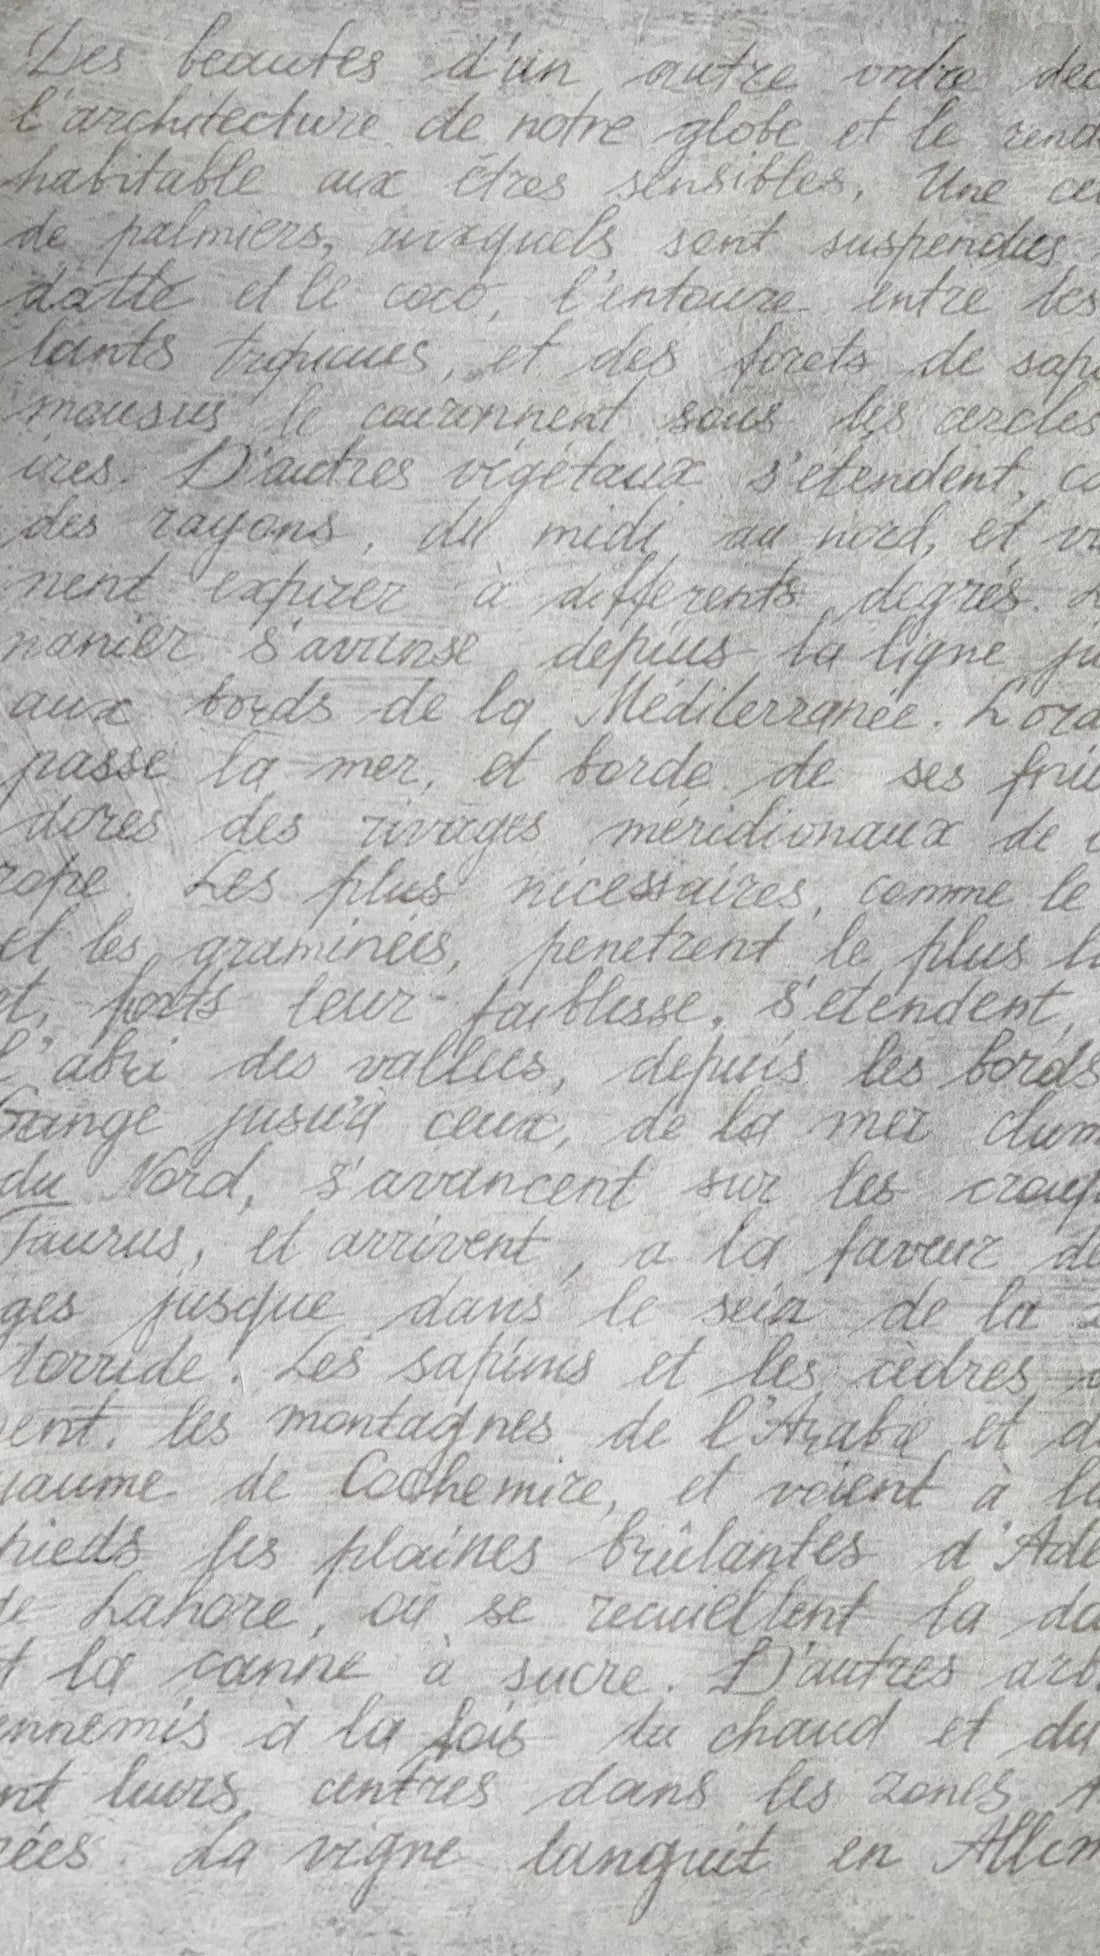 Des beautes d'un autre ordre dec
l'architecture de notre globe et le rend
habitable aux êtres sensibles, Une cei
de palmiers, auxquels sont suspendus
datte et le coco, l'entoure entre les
lants et des forets de sapi
mousus le couronnent sous les cercles
ires. D'autres végétaux s'etendent, co
des rayons, du midi au nord, et vi
nent expirer à differents degrés.
nanier s'avanse depius la ligne ju
aux bords de la Méditerranée. L'ora
passe la mer, et borde de ses frui
dores des rivages méridionaux de
rope. Les plus nicessaires, comme le
et les graminées, penetrent le plus l
et, forts leur faiblesse, s'etendent,
l'abri des vallees, depuis les bords
Gange jusu'à ceux, de la mer
du Nord, s'avancent sur les croup
Taurus, et arrivent, a la faveur de
ges jusque dans le sein de la z
torride. Les sapins et les cèdres
ent, les montagnes de l'Arabie et d
yaume de Cachemire, et voient à l
pieds les plaines brûlantes d'Ade
de Lahore, ou se recueillent la da
t la canne à sucre. D'autres arb
ennemis à la fois du chaud et du
nt leurs centres dans les zones
rées. La vigne languit en Allem